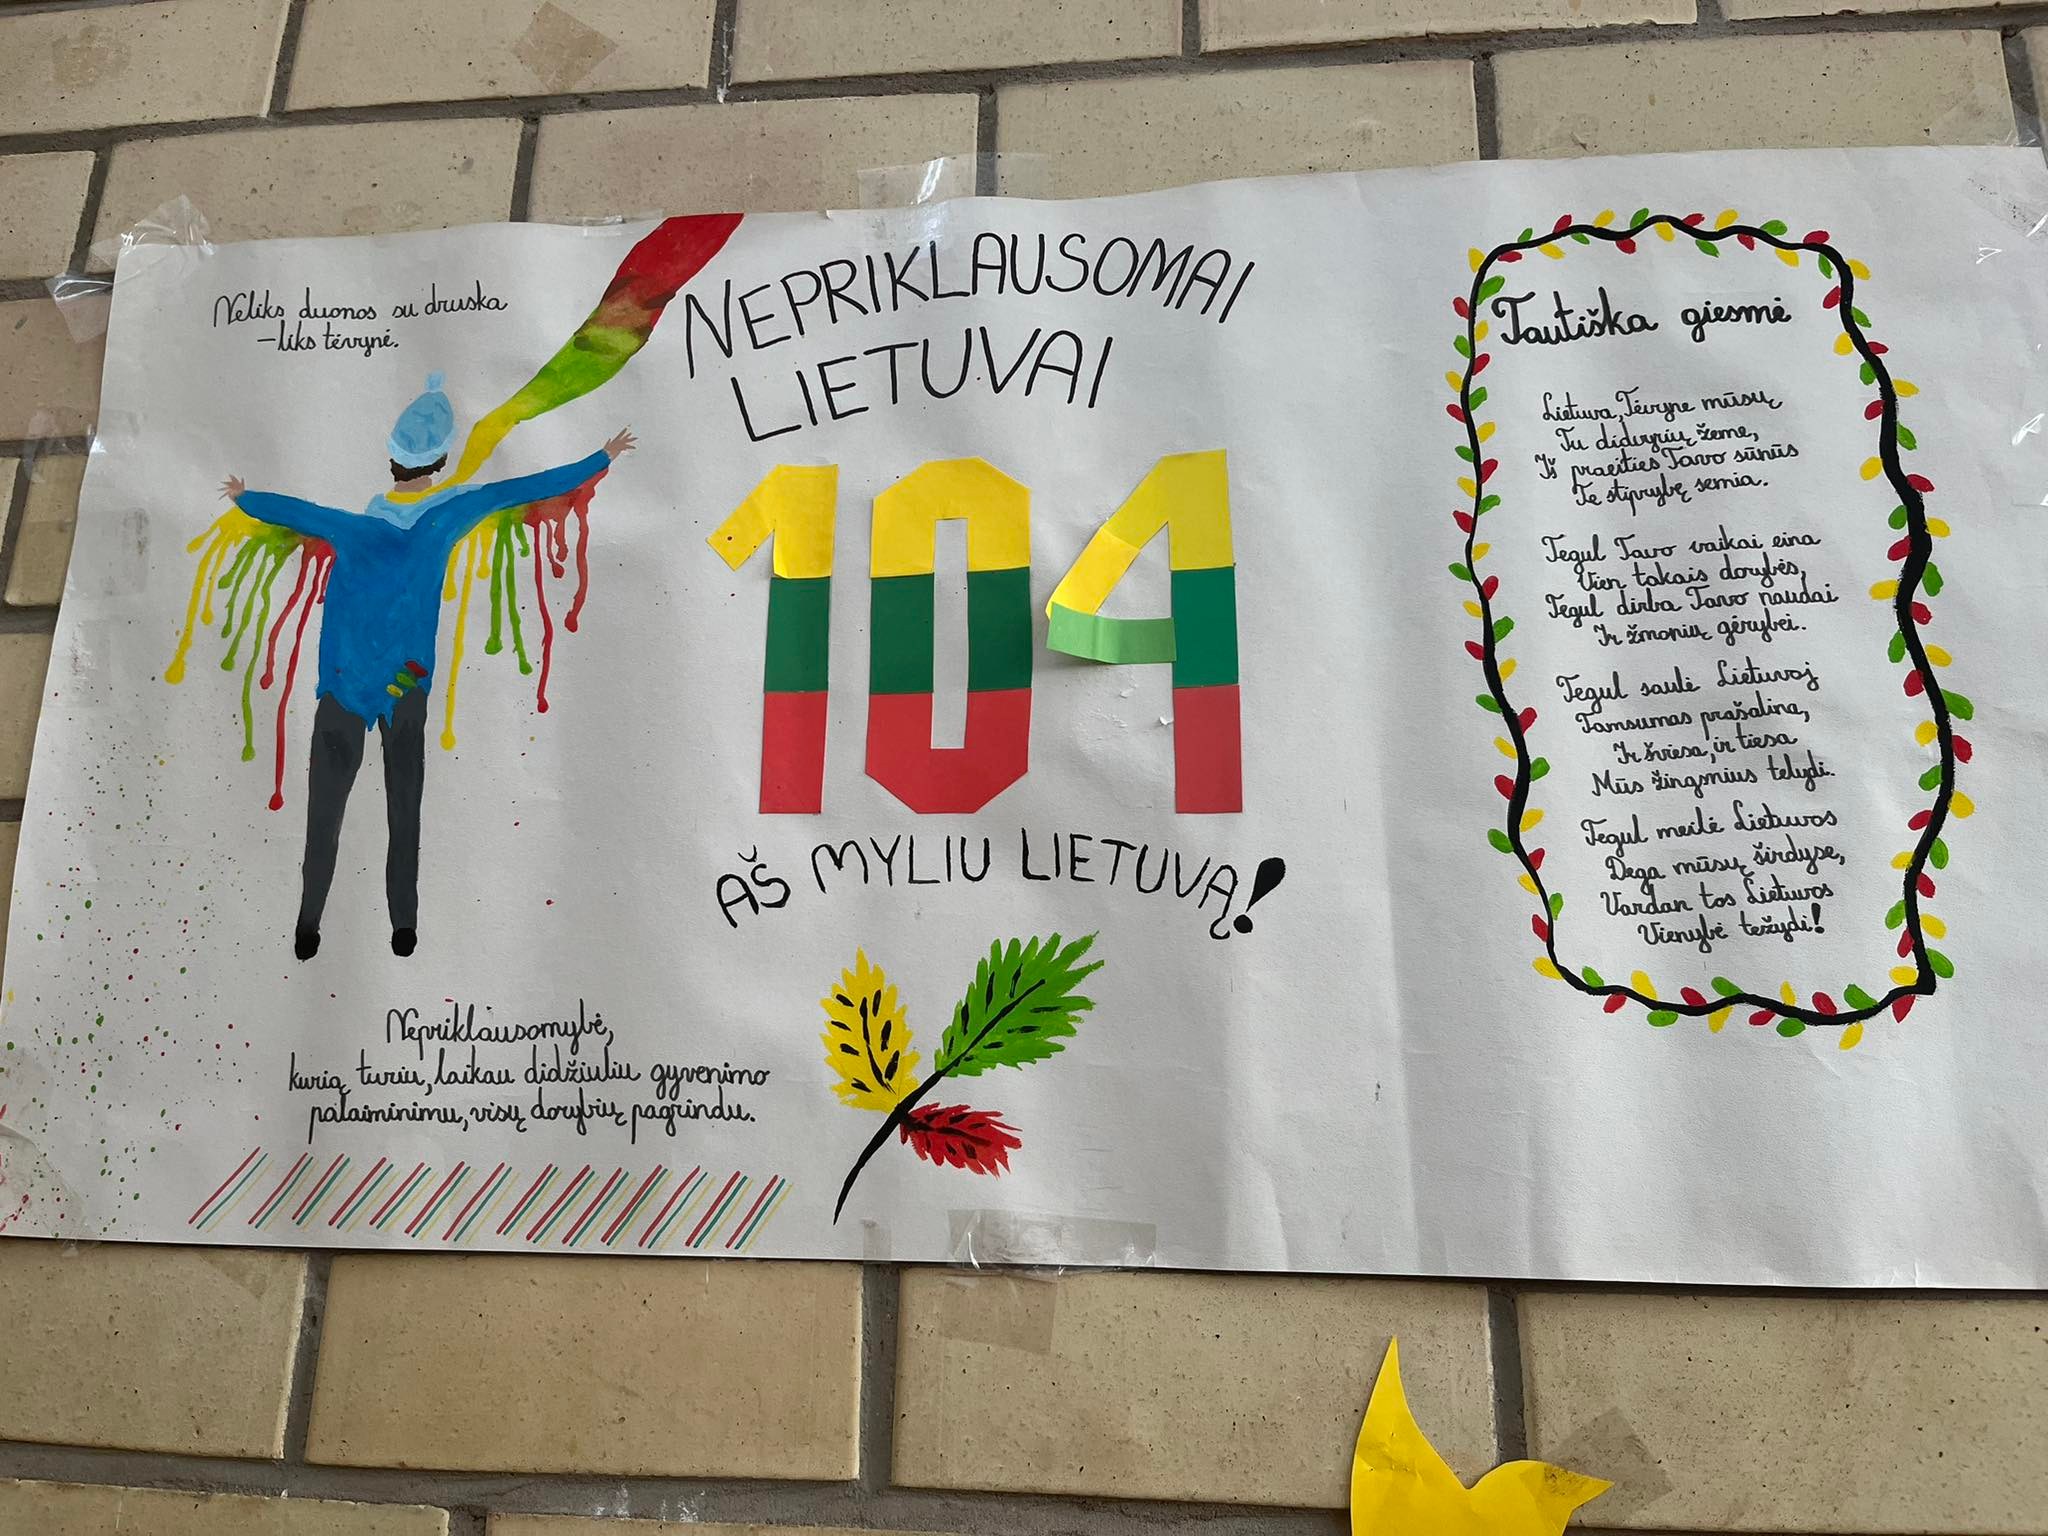 Neliks duonos su druska
-liks tėvynė.
NEPRIKLAUSOMAI
LIETUVAI
104
AŠ MYLIU LIETUVĄ!
Nepriklausomybė,
kurią turiu, laikau didžiuliu gyvenimo
palaiminimu, visų dorybių pagrindu.
Tautiška giesmė
Lietuva, Tėvyne mūsų
Tu didvyrių žeme,
Iš praeities Tavo sūnūs
Te stiprybę semia.
Tegul Tavo vaikai eina
Vien takais dorybės,
Tegul dirba Tavo naudai
Ir žmonių gėrybei.
Tegul saulė Lietuvoj
Tamsumas prašalina,
Ir šviesa, ir tiesa
Mūs žingsnius telydi.
Tegul meilė Lietuvos
Dega mūsų širdyse,
Vardan tos Lietuvos
Vienybė težydi!